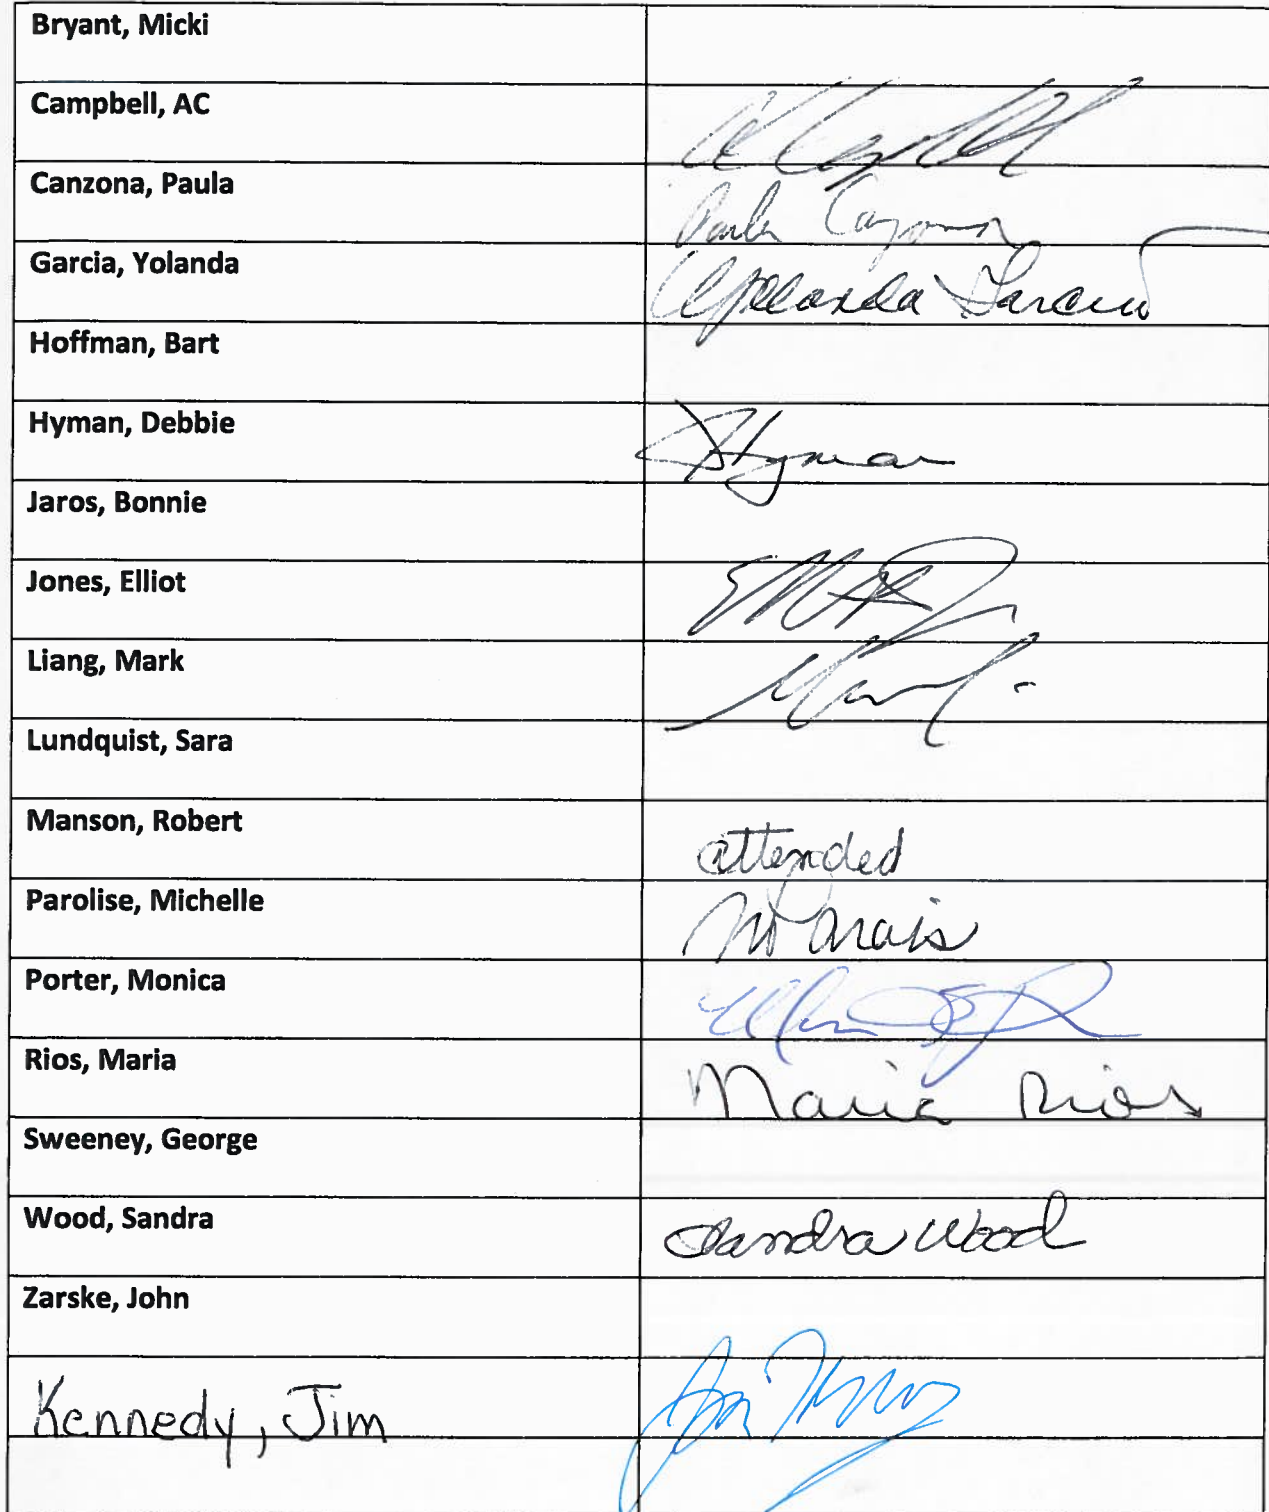 Bryant, Micki
Campbell, AC
Canzona, Paula
Garcia, Yolanda
Hoffman, Bart
Hyman, Debbie Hyman
Jaros, Bonnie
Jones, Elliot
Liang, Mark
Lundquist, Sara
Manson, Robert attended
Parolise, Michelle
Porter, Monica
Rios, Maria Maria Rios
Sweeney, George
Wood, Sandra Sandra Wood
Zarske, John
Kennedy, Jim